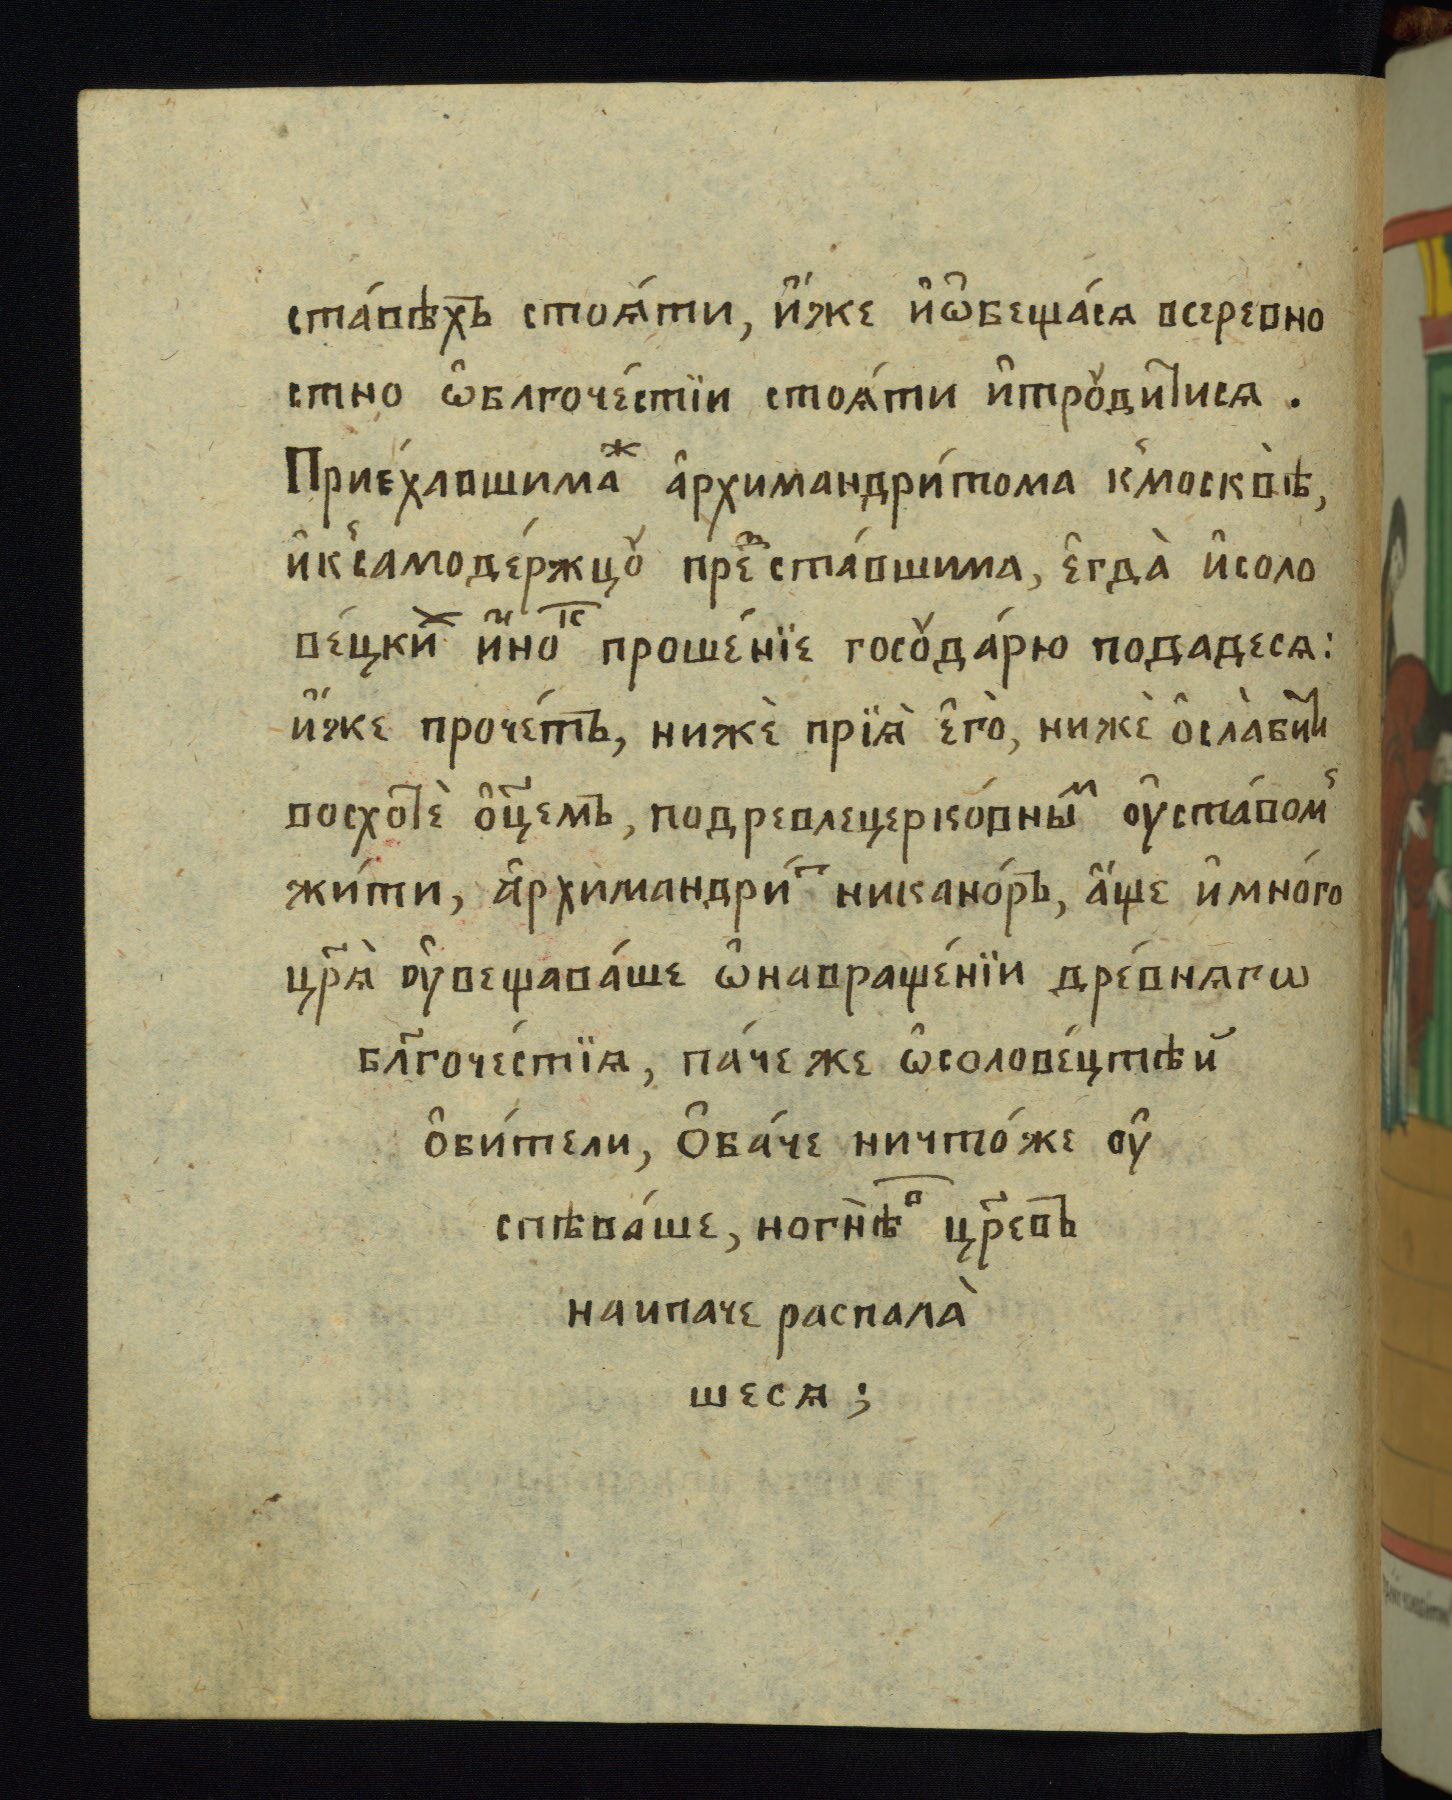 ста́вѣхъ стоѧ́ти, и҆́же и҆ѡ҆беща́сѧ всеревно
стно ѡ҆блгоче́стїи стоѧ́ти и҆трꙋди́тисѧ .
Прие́хавшимаⷤ а҆рхимандри́тома к̾москвѣ̀,
и҆к̾самоде́ржцꙋ преⷣста́вшима, є҆гда̀ и҆соло
ве́цкиⷯ и҆́ноⷦ҇ проше́нїе госꙋда́рю подадесѧ:
и҆́же проче́тъ, нижѐ прїѧ̀ є҆го̀, нижѐ ѻ҆сла̀бити
восхотѐ ѻ҆ц҃емъ, подревлецерко́вныⷨ ᲂу҆ста́вом̾
жи́ти, а҆рхимандри́ⷮ никано́ръ, а҆́ще и҆мно́го
цр҃ѧ̀ ᲂу҆вещава́ше ѡ҆навраще́нїи дре́внѧгѡ
бл҃гоче́стїѧ, па́че же ѡ҆солове́цтѣй
ѻ҆би́тели, Ѻ҆ба́че ничто́же ᲂу҆
спѣва́ше, ногнѣ̀ⷡ҇ цр҃евъ
наипаче распала̀
шесѧ ;